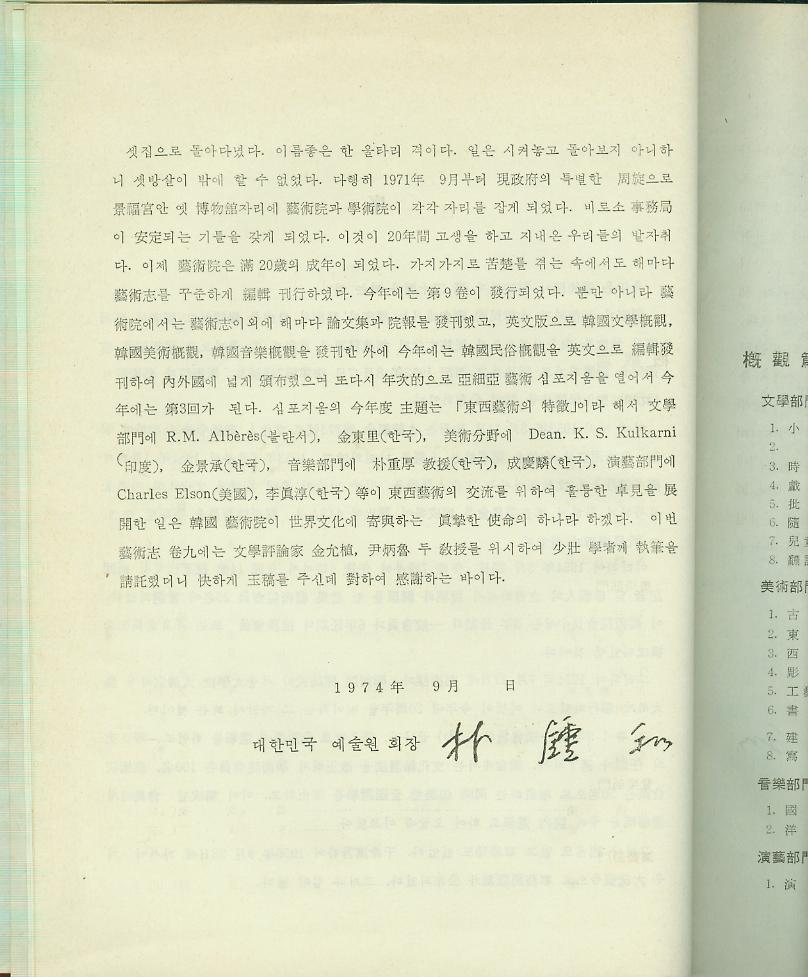 셋집으로 돌아다녔다. 이름좋은 한 울타리 격이다. 일은 시켜놓고 돌아보지 아니하
니 셋방살이 밖에 할 수 없었다. 다행히 1971年 9月부터 現政府의 특별한 周旋으로
景福宮안 옛 博物館자리에 藝術院과 學術院이 각각 자리를 잡게 되었다. 비로소 事務局
이 安定되는 기틀을 갖게 되었다. 이것이 20年間 고생을 하고 지내온 우리들의 발자취
다. 이제 藝術院은 滿 20歲의 成年이 되었다. 가지가지로 苦楚를 겪는 속에서도 해마다
藝術志를 꾸준하게 編輯 刊行하였다. 今年에는 第9卷이 發行되었다. 뿐만 아니라 藝
術院에서는 藝術志이외에 해마다 論文集과 院報를 發刊했고, 英文版으로 韓國文學槪觀,
韓國美術槪觀, 韓國音樂槪觀을 發刊한 外에 今年에는 韓國民俗槪觀을 英文으로 編輯發
刊하여 內外國에 넓게 頒布했으며 또다시 年次的으로 亞細亞 藝術 심포지움을 열어서 今
年에는 第3回가 된다. 심포지움의 今年度 主題는 「東西藝術의 特徵」이라 해서 文學
部門에 R.M. Albèrès(불란서), 金東里(한국), 美術分野에 Dean. K. S. Kulkarni
(印度), 金景承(한국), 音樂部門에 朴重厚 敎授(한국), 成慶麟(한국), 演藝部門에
Charles Elson(美國), 李眞淳(한국) 等이 東西藝術의 交流를 위하여 훌륭한 卓見을 展
開한 일은 韓國 藝術院이 世界文化에 寄與하는 眞摯한 使命의 하나라 하겠다. 이번
藝術志 卷九에는 文學評論家 金允植, 尹炳魯 두 敎授를 위시하여 少壯 學者께 執筆을
請託했더니 快하게 玉稿를 주신데 對하여 感謝하는 바이다.
1974年 9月 日
대한민국 예술원 회장 朴鍾和
槪觀
文學部門
1. 小
2.
3. 時
4. 戱
5. 批
6. 隨
7. 兒童
8. 飜譯
美術部門
1. 古
2. 東
3. 西
4. 彫
5. 工藝
6. 書
7. 建
8. 寫
音樂部門
1. 國
2. 洋
演藝部門
1. 演